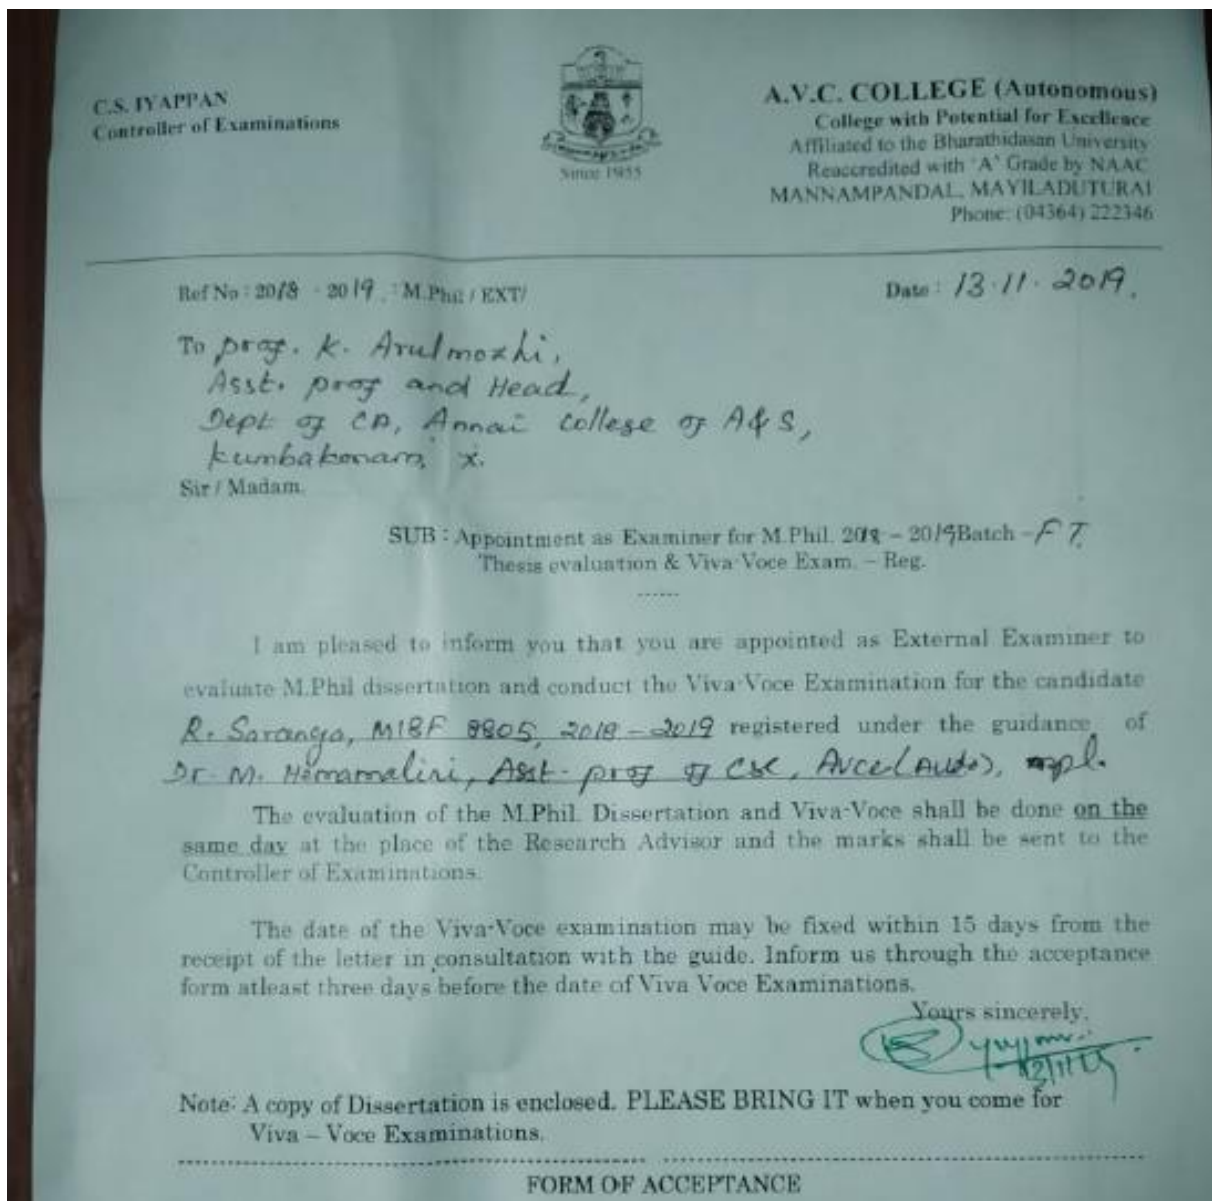 C.S. IYAPPAN
Controller of Examinations
Since 1955
A.V.C. COLLEGE (Autonomous)
College with Potential for Excellence
Affiliated to the Bharathidasan University
Reaccredited with 'A' Grade by NAAC
MANNAMPANDAL, MAYILADUTURAI
Phone: (04364) 222346
Ref No : 2018 - 2019 : M.Phil / EXT/
Date : 13.11.2019.
To prof. K. Arulmozhi,
Asst. prof and Head,
Dept of CA, Annai College of A&S,
Kumbakonam
Sir / Madam.
SUB : Appointment as Examiner for M.Phil. 2018 – 2019 Batch – FT.
Thesis evaluation & Viva-Voce Exam. – Reg.
------
I am pleased to inform you that you are appointed as External Examiner to
evaluate M.Phil dissertation and conduct the Viva-Voce Examination for the candidate
R. Saranga, M18F 8805, 2018 – 2019 registered under the guidance of
Dr. M. Hemamalini, Asst. prof of CSC, AVCC(Auto),
The evaluation of the M.Phil. Dissertation and Viva-Voce shall be done on the
same day at the place of the Research Advisor and the marks shall be sent to the
Controller of Examinations.
The date of the Viva-Voce examination may be fixed within 15 days from the
receipt of the letter in consultation with the guide. Inform us through the acceptance
form atleast three days before the date of Viva Voce Examinations.
Yours sincerely,
Note: A copy of Dissertation is enclosed. PLEASE BRING IT when you come for
Viva – Voce Examinations.
FORM OF ACCEPTANCE